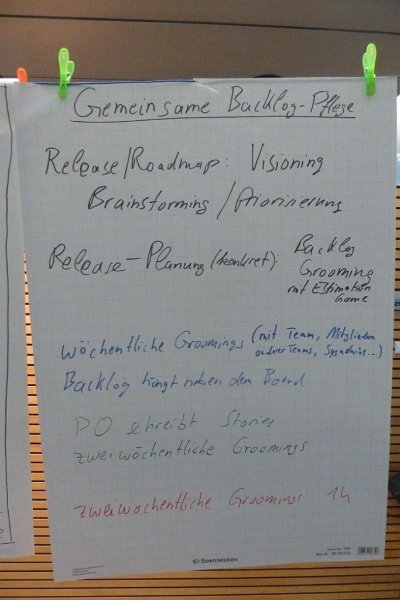 Gemeinsame Backlog-Pflege
Release/Roadmap: Visioning
Brainstorming / Priorisierung
Release-Planung (konkret): Backlog
Grooming
mit Estimation
Game
wöchentliche Groomings (mit Team, Mitgliedern
anderer Teams, Sysadmins...)
Backlog hängt neben dem Board
PO schreibt Stories
zweiwöchentliche Groomings
zweiwöchentliche Groomings 1h
Soennecken